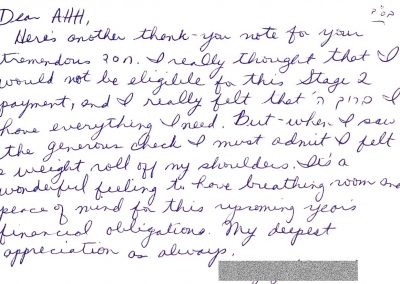 בס"ד
Dear AHH,
Here's another thank-you note for your
tremendous חסד. I really thought that I
would not be eligible for this Stage 2
payment, and I really felt that ה'
have everything I need. But - when I saw
the generous check I must admit I felt
a weight roll off my shoulders. It's a
wonderful feeling to have breathing room and
peace of mind for this upcoming year's
financial obligations. My deepest
appreciation as always,